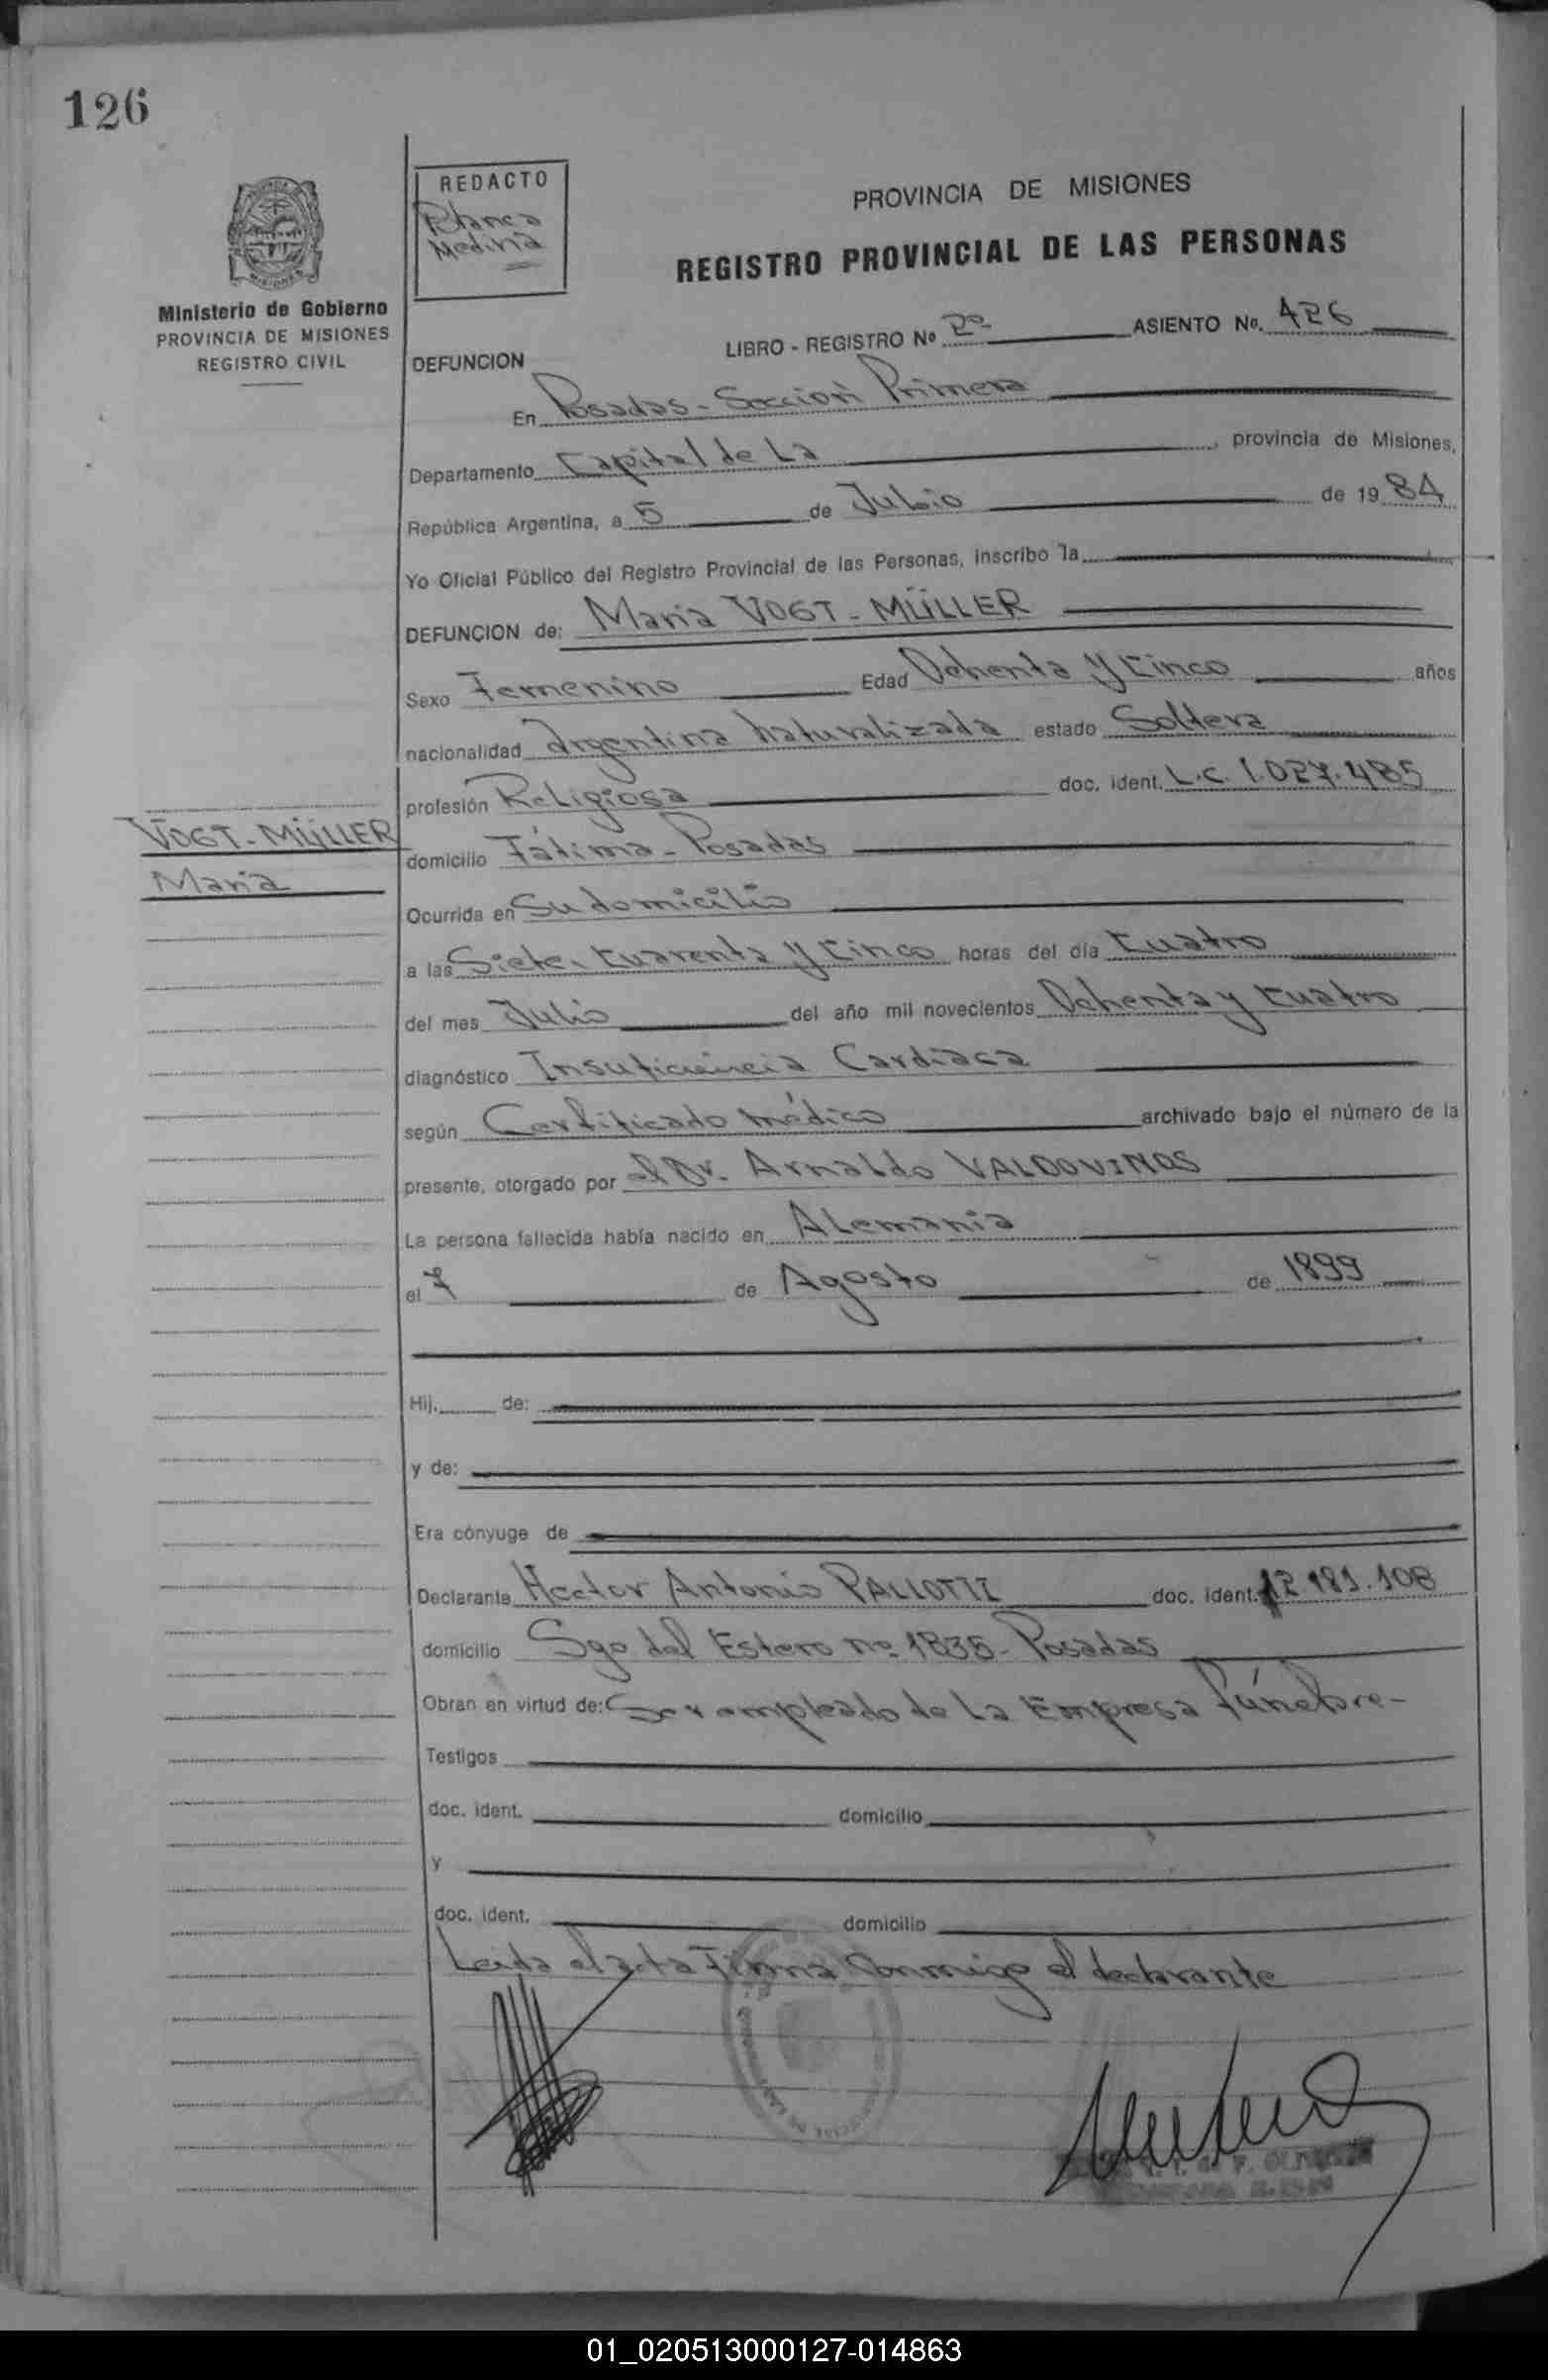 126
REDACTO
Blanca
Medina
PROVINCIA DE MISIONES
REGISTRO PROVINCIAL DE LAS PERSONAS
Ministerio de Gobierno
PROVINCIA DE MISIONES
REGISTRO CIVIL
LIBRO - REGISTRO Nº 2º ASIENTO No. 426
DEFUNCION
En Posadas - Sección Primera
Departamento Capital de La, provincia de Misiones,
República Argentina, a 5 de Julio de 1984
Yo Oficial Público del Registro Provincial de las Personas, inscribo la
DEFUNCION de: Maria VOGT - MÜLLER
Sexo Femenino Edad Ochenta y Cinco años
nacionalidad Argentina Naturalizada estado Soltera
profesión Religiosa doc. ident. L.C. 1.027.485
VOGT - MÜLLER
Maria
domicilio Fátima - Posadas
Ocurrida en Su domicilio
a las Siete, Cuarenta y Cinco horas del día Cuatro
del mes Julio del año mil novecientos Ochenta y Cuatro
diagnóstico Insuficiencia Cardiaca
según Certificado médico archivado bajo el número de la
presente, otorgado por el Dr. Arnaldo VALDOVINOS
La persona fallecida había nacido en Alemania
el 7 de Agosto de 1899
Hij. de:
y de:
Era cónyuge de
Declarante Hector Antonio PALLOTTI doc. ident. 12.181.108
domicilio Sgo del Estero nº 1835 - Posadas
Obran en virtud de: Ser empleado de La Empresa fúnebre -
Testigos
doc. ident. domicilio
y
doc. ident. domicilio
Leida el acta Firma Conmigo el declarante
01_020513000127-014863